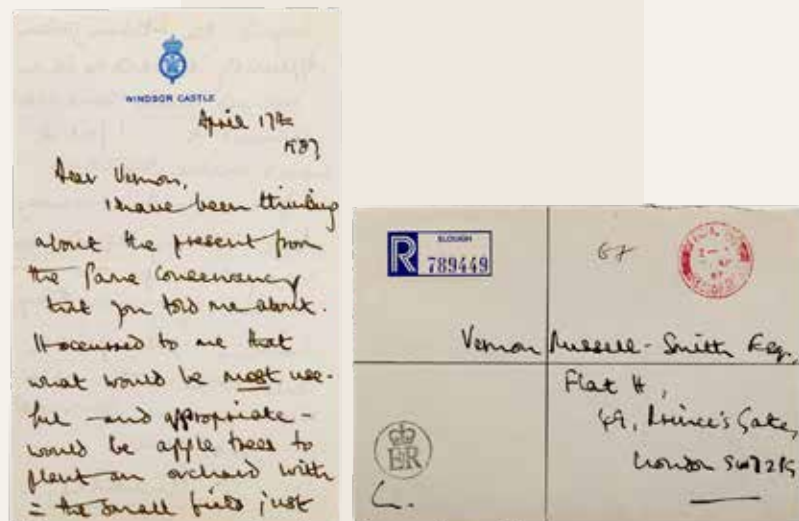 WINDSOR CASTLE
April 17th
1987
Dear Vernon,
I have been thinking
about the present from
the Game Conservancy
that you told me about.
It occurred to me that
what would be most use-
ful - and appropriate -
would be apple trees to
plant an orchard with
= the small field just
R
SLOUGH
789449
67
Vernon Russell-Smith Esq.,
Flat H,
49, Prince's Gate,
London SW7 2PG
ER
C.